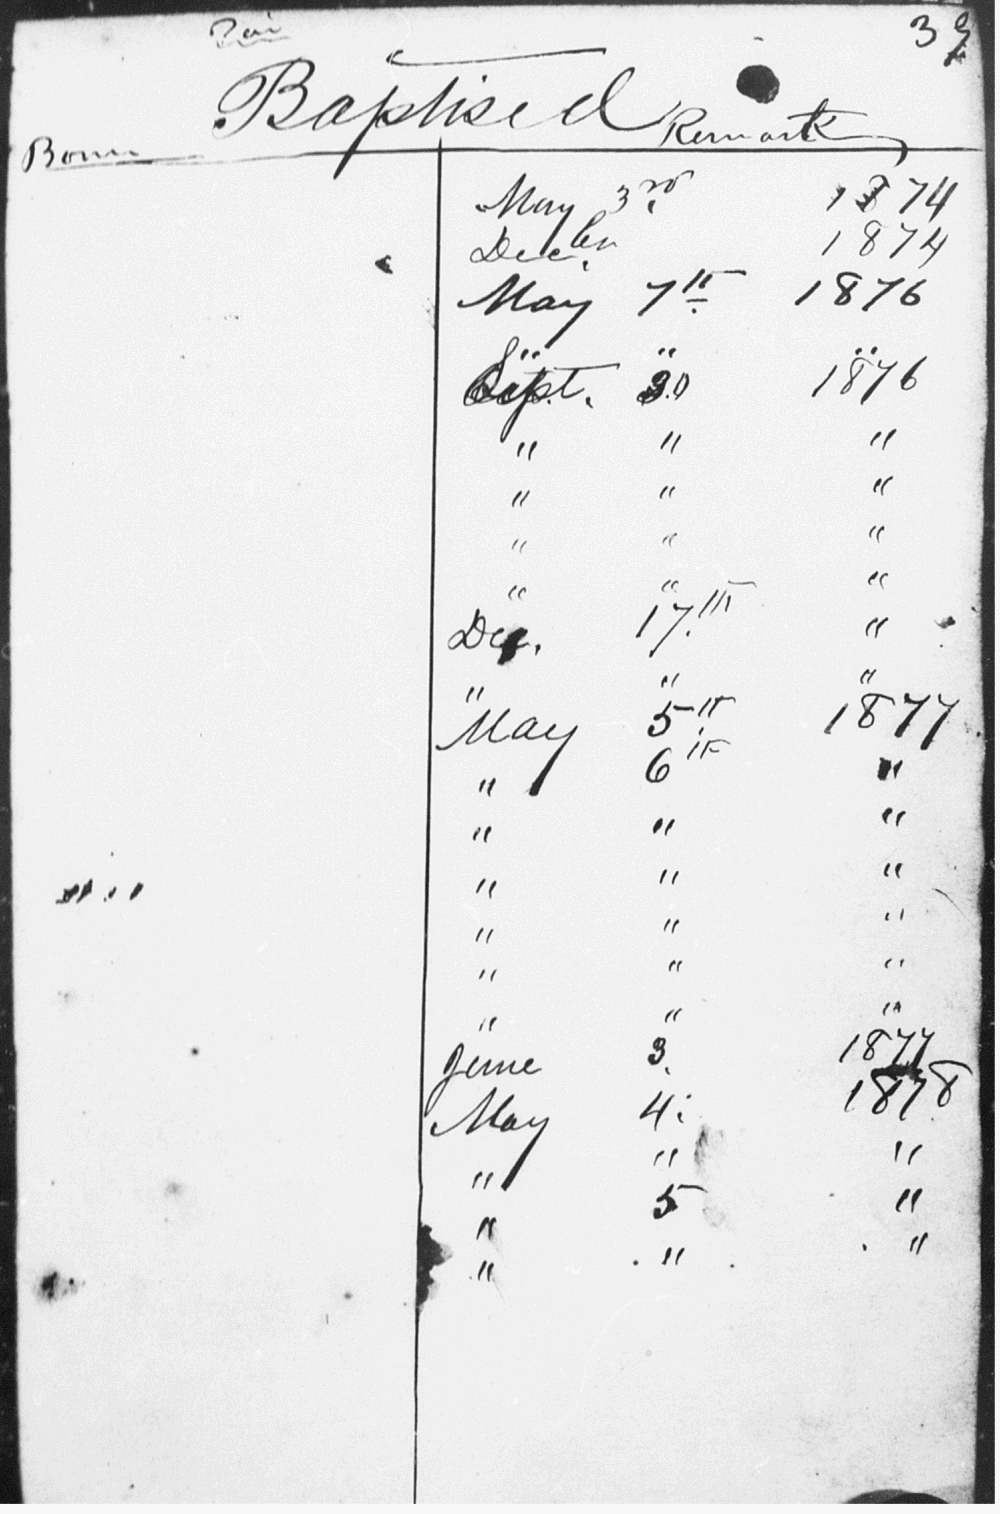 39
Baptised Remark
Born
May 3rd 1874
Decbr. 1874
May 7th 1876
" " "
Sept. 30 1876
" " "
" " "
" " "
" " "
Dec. 17.th "
" " "
May 5th 1877
" 6th "
" " "
" " "
" " "
" " "
" " "
June 3. 1877
May 4. 1878
" " "
" 5 "
" " "